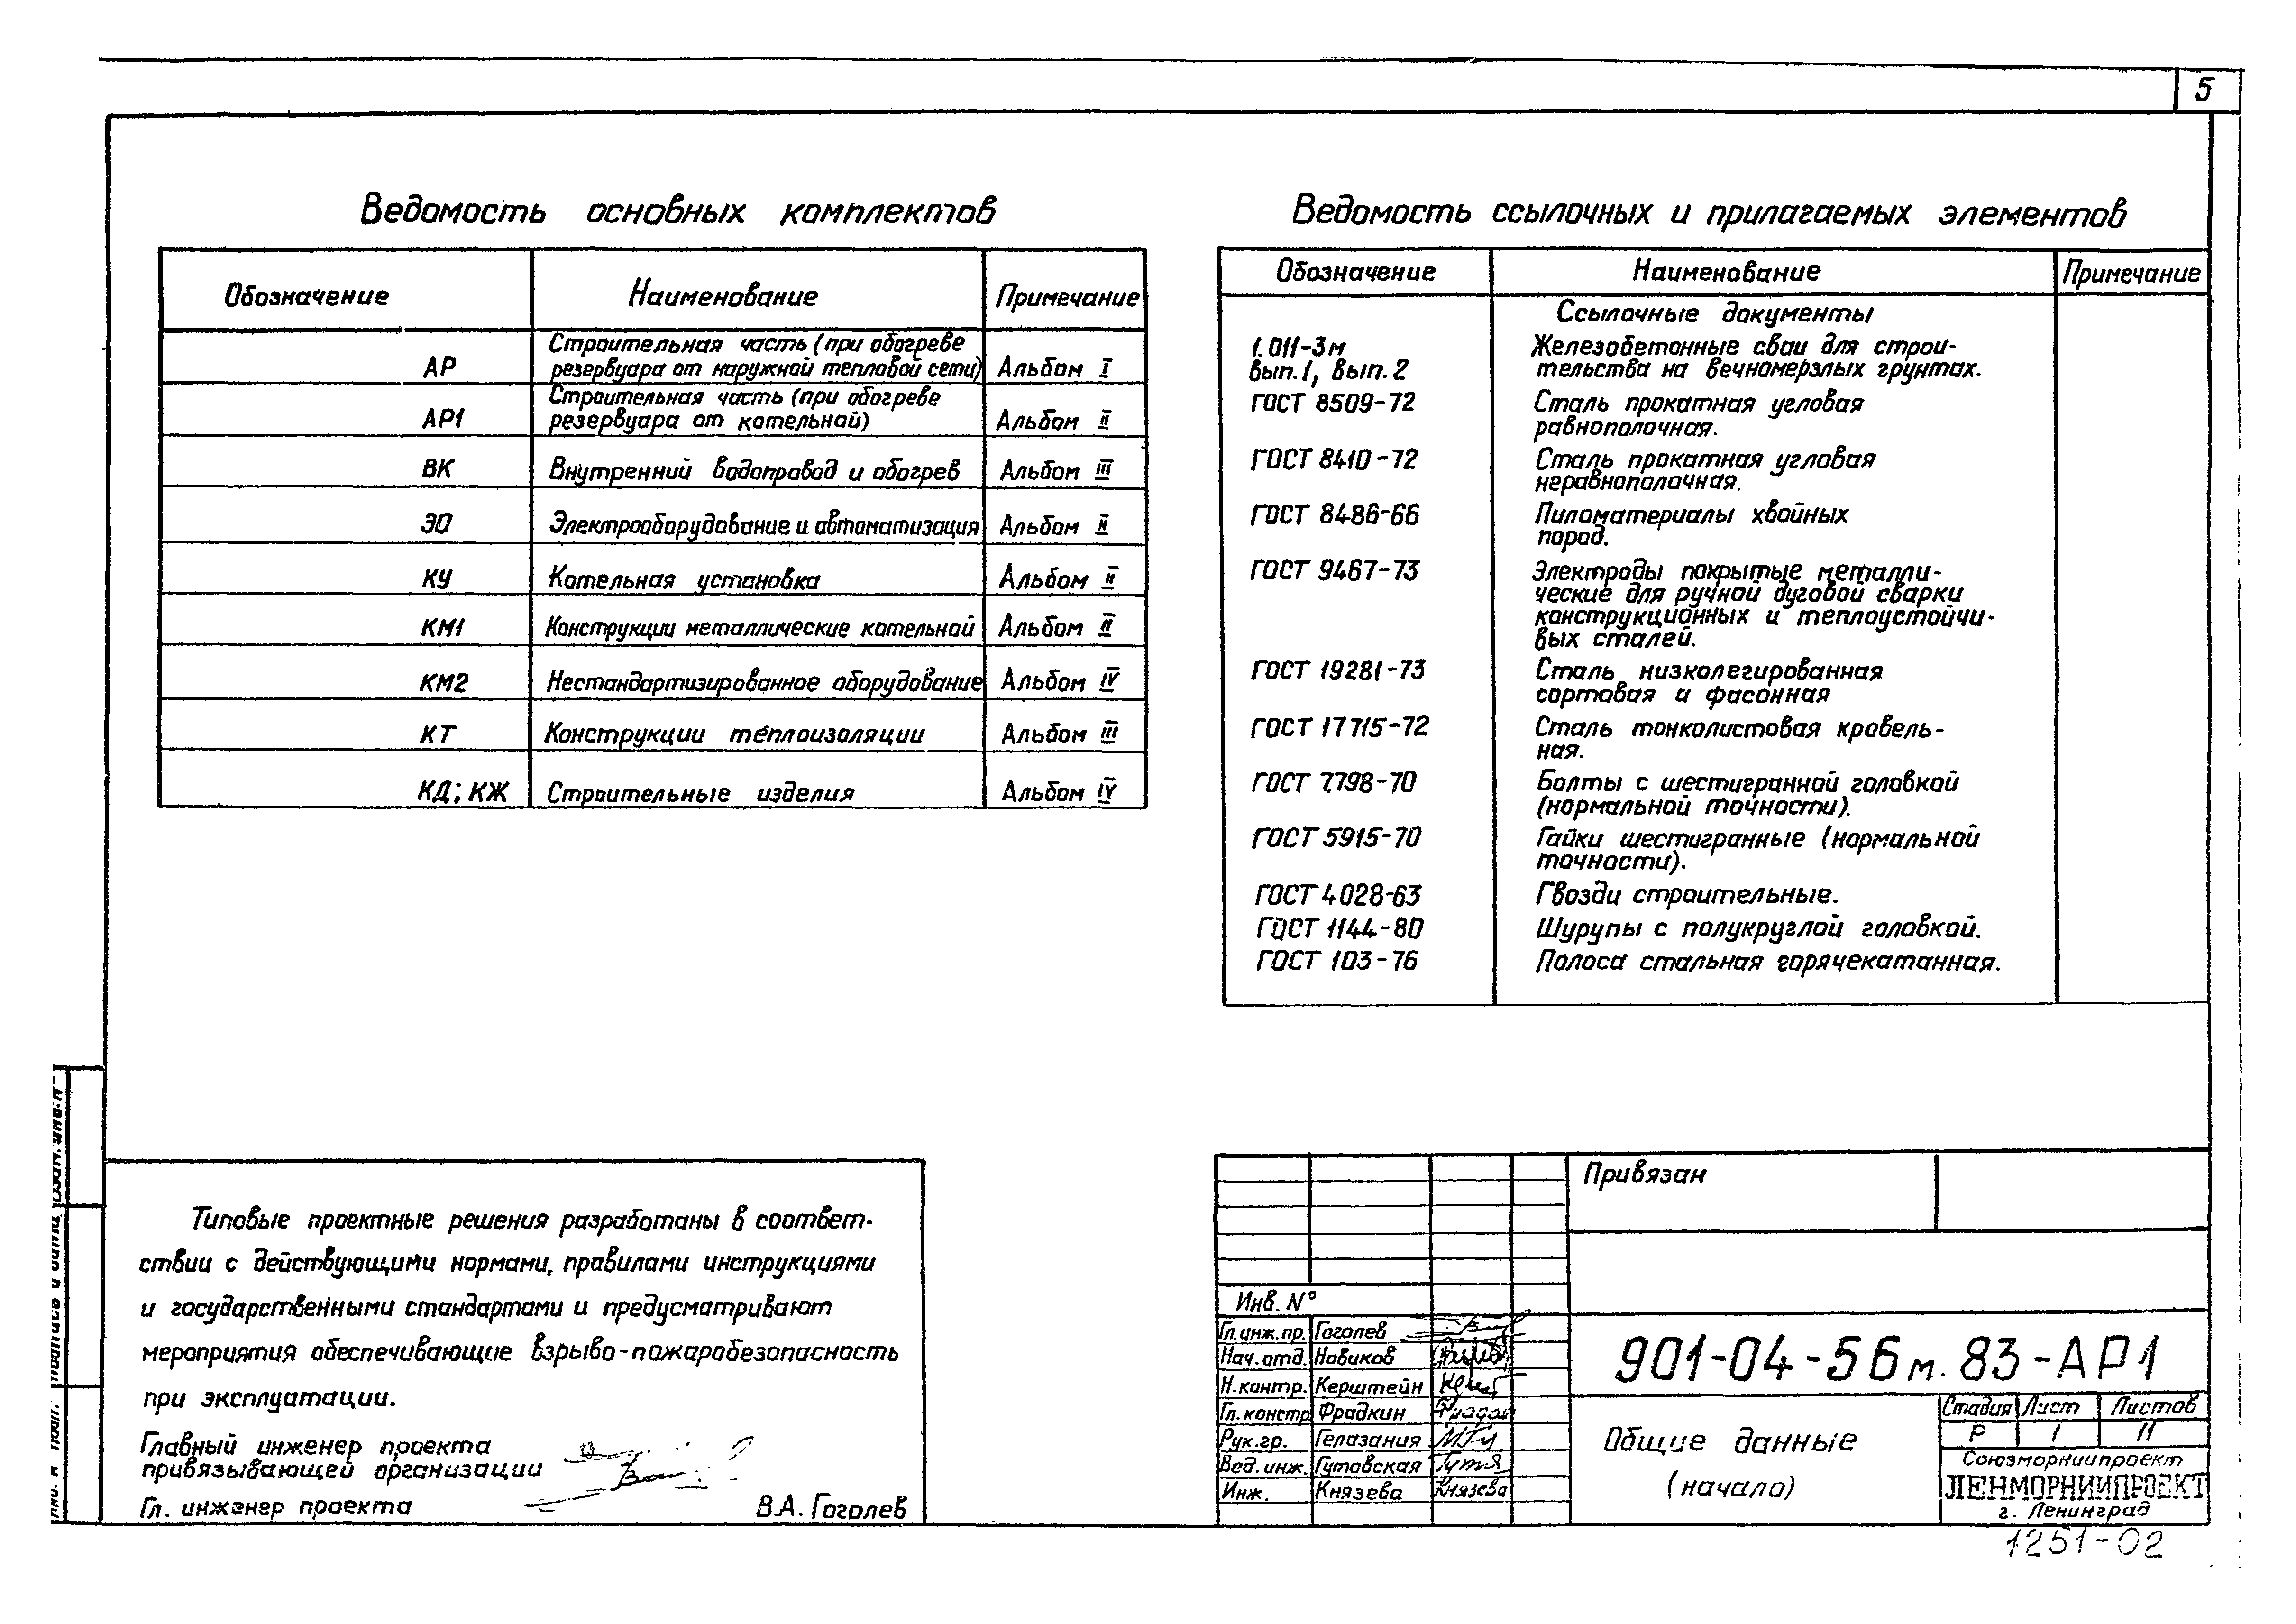 5
Ведомость основных комплектов
Обозначение Наименование Примечание
АР Строительная часть (при обогреве
резервуара от наружной тепловой сети) Альбом I
АР1 Строительная часть (при обогреве
резервуара от котельной) Альбом II
ВК Внутренний водопровод и обогрев Альбом III
ЭО Электрооборудование и автоматизация Альбом II
КУ Котельная установка Альбом II
КМ1 Конструкции металлические котельной Альбом II
КМ2 Нестандартизированное оборудование Альбом IV
КТ Конструкции теплоизоляции Альбом III
КД; КЖ Строительные изделия Альбом IV
Ведомость ссылочных и прилагаемых элементов
Обозначение Наименование Примечание
Ссылочные документы
1.011-3м Железобетонные сваи для строи-
вып.1, вып.2 тельства на вечномерзлых грунтах.
ГОСТ 8509-72 Сталь прокатная угловая
равнополочная.
ГОСТ 8410-72 Сталь прокатная угловая
неравнополочная.
ГОСТ 8486-66 Пиломатериалы хвойных
пород.
ГОСТ 9467-73 Электроды покрытые металли-
ческие для ручной дуговой сварки
конструкционных и теплоустойчи-
вых сталей.
ГОСТ 19281-73 Сталь низколегированная
сортовая и фасонная
ГОСТ 17715-72 Сталь тонколистовая кровель-
ная.
ГОСТ 7798-70 Болты с шестигранной головкой
(нормальной точности).
ГОСТ 5915-70 Гайки шестигранные (нормальной
точности).
ГОСТ 4028-63 Гвозди строительные.
ГОСТ 1144-80 Шурупы с полукруглой головкой.
ГОСТ 103-76 Полоса стальная горячекатанная.
Типовые проектные решения разработаны в соответ-
ствии с действующими нормами, правилами инструкциями
и государственными стандартами и предусматривают
мероприятия обеспечивающие взрыво-пожаробезопасность
при эксплуатации.
Главный инженер проекта
привязывающей организации
Гл. инженер проекта В.А. Гоголев
Привязан
Инв. №
Гл.инж.пр. Гоголев
Нач.отд. Новиков
Н.контр. Керштейн
Гл.констр Фрадкин
Рук.гр. Гелазания
Вед.инж. Гутовская
Инж. Князева Князева
901-04-56м.83-АР1
Общие данные
(начало)
Стадия Лист Листов
Р 1 11
Союзморниипроект
ЛЕНМОРНИИПРОЕКТ
г. Ленинград
1251-02